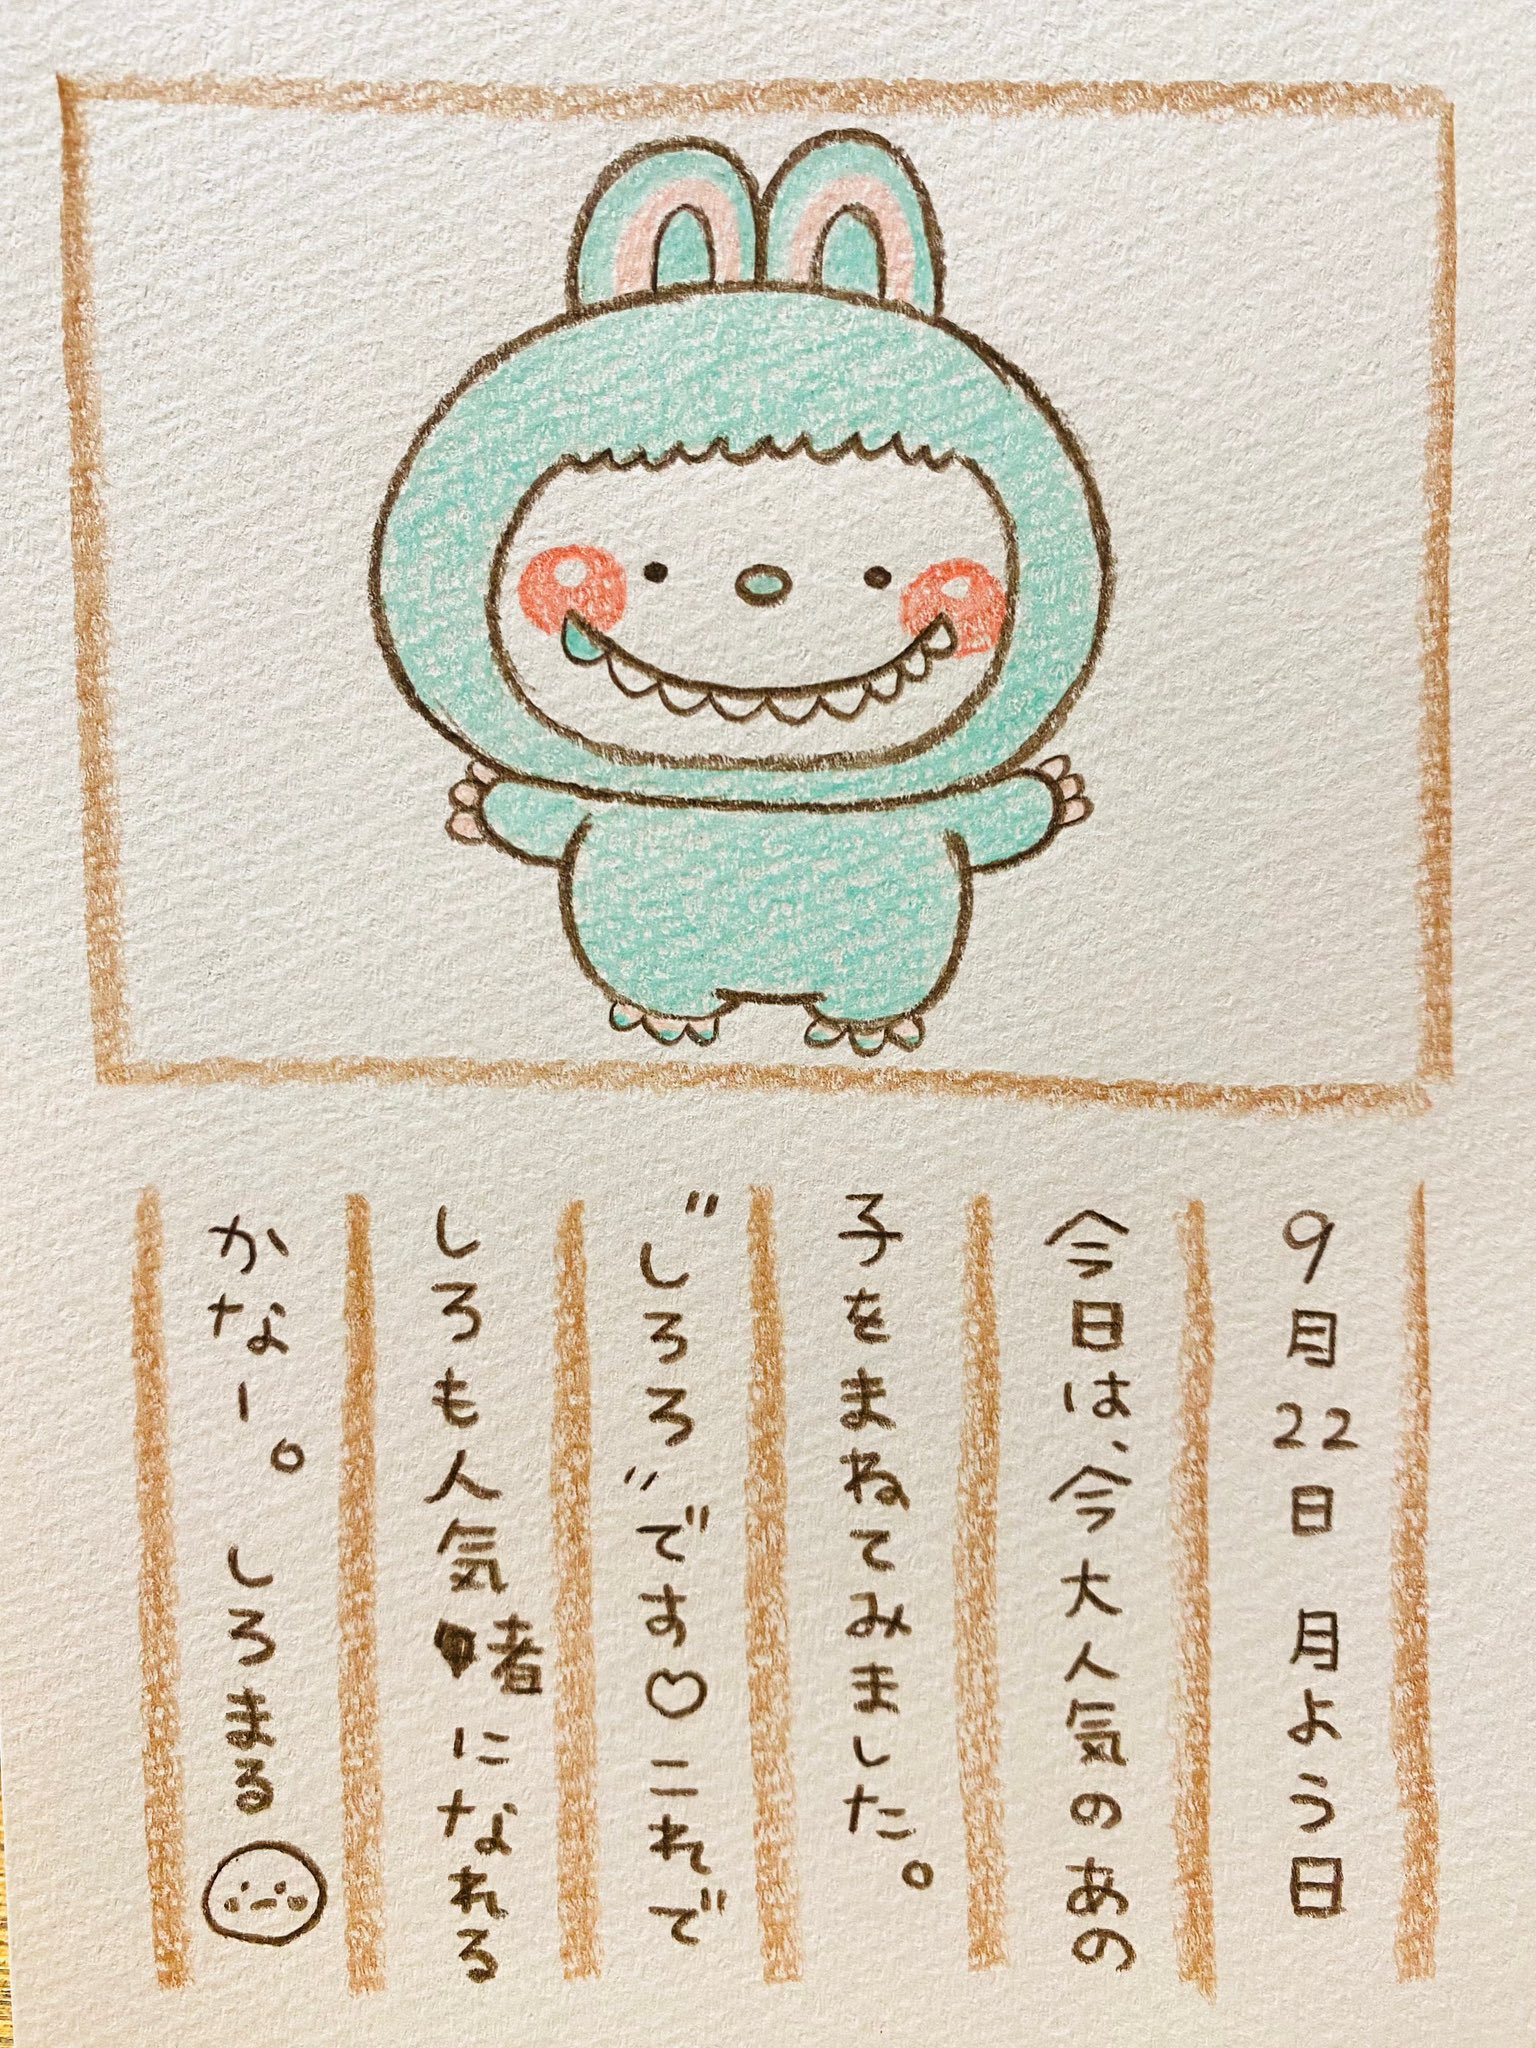 9月22日 月よう日
今日は、今大人気のあの
子をまねてみました。
"しろろ"です♡これで
しろも人気者になれる
かなー。 しろまる